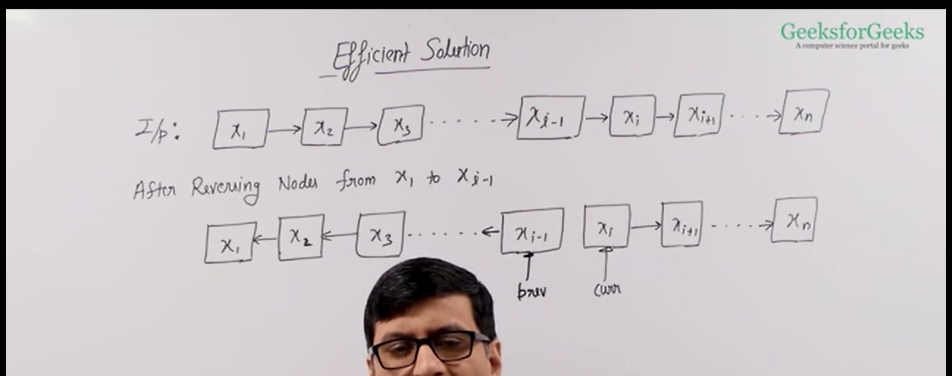 GeeksforGeeks
A computer science portal for geeks
Efficient Solution
I/p: x₁ → x₂ → x₃ ······→ xᵢ₋₁ → xᵢ → xᵢ₊₁ ····→ xₙ
After Reversing Nodes from x₁ to xᵢ₋₁
x₁ ← x₂ ← x₃ ······← xᵢ₋₁ xᵢ → xᵢ₊₁ ·····→ xₙ
prev curr